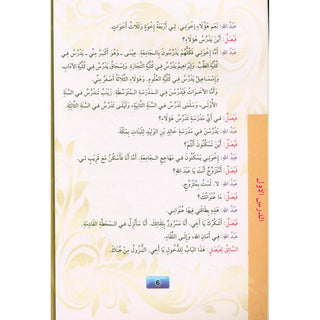 عَبْدُ اللهِ: نَعَمْ هَؤُلَاءِ إِخْوَتِي. لِي أَرْبَعَةُ إِخْوَةٍ وَثَلَاثُ أَخَوَاتٍ.
فَيْصَلٌ: أَيْنَ يَدْرُسُ هَؤُلَاءِ؟
عَبْدُ اللهِ: أَمَّا إِخْوَتِي فَكُلُّهُمْ يَدْرُسُونَ بِالْجَامِعَةِ. عِيسَى – وَهُوَ أَكْبَرُ مِنِّي – يَدْرُسُ فِي
كُلِّيَّةِ الطِّبِّ، وَإِبْرَاهِيمُ يَدْرُسُ فِي كُلِّيَّةِ التِّجَارَةِ، وَإِسْحَاقُ يَدْرُسُ فِي كُلِّيَّةِ الْآدَابِ،
وَإِسْمَاعِيلُ يَدْرُسُ فِي كُلِّيَّةِ الْعُلُومِ. وَهَؤُلَاءِ الثَّلَاثَةُ أَصْغَرُ مِنِّي.
وَأَمَّا الْأَخَوَاتُ فَيَدْرُسْنَ فِي الْمَدْرَسَةِ الْمُتَوَسِّطَةِ. زَيْنَبُ تَدْرُسُ فِي السَّنَةِ
الْأُولَى، وَسَلْمَى تَدْرُسُ فِي السَّنَةِ الثَّانِيَةِ، وَلَيْلَى تَدْرُسُ فِي السَّنَةِ الثَّالِثَةِ.
فَيْصَلٌ: فِي أَيِّ مَدْرَسَةٍ تَدْرُسُ هَؤُلَاءِ؟
عَبْدُ اللهِ: يَدْرُسْنَ فِي مَدْرَسَةِ خَالِدِ بْنِ الْوَلِيدِ لِلْبَنَاتِ بِمَكَّةَ.
فَيْصَلٌ: أَيْنَ تَسْكُنُونَ أَنْتُمْ؟
عَبْدُ اللهِ: إِخْوَتِي يَسْكُنُونَ فِي مَهَاجِعِ الْجَامِعَةِ. أَمَّا أَنَا فَأَسْكُنُ مَعَ قَرِيبٍ لِي.
فَيْصَلٌ: أَمُتَزَوِّجٌ أَنْتَ يَا عَبْدَ اللهِ؟
عَبْدُ اللهِ: لَا. لَسْتُ بِمُتَزَوِّجٍ.
فَيْصَلٌ: مَا عُنْوَانُكَ؟
عَبْدُ اللهِ: هَذِهِ بِطَاقَتِي فِيهَا عُنْوَانِي.
فَيْصَلٌ: أَشْكُرُكَ يَا أَخِي. أَنَا مَسْرُورٌ بِلِقَائِكَ. أَنَا سَأَنْزِلُ فِي الْمَحَطَّةِ الْقَادِمَةِ.
عَبْدُ اللهِ: فِي أَمَانِ اللهِ، وَإِلَى اللِّقَاءِ.
السَّائِقُ لِفَيْصَلٍ: هَذَا الْبَابُ لِلدُّخُولِ يَا أَخِي. النُّزُولُ مِنْ هُنَاكَ.
الدرس الأول
6